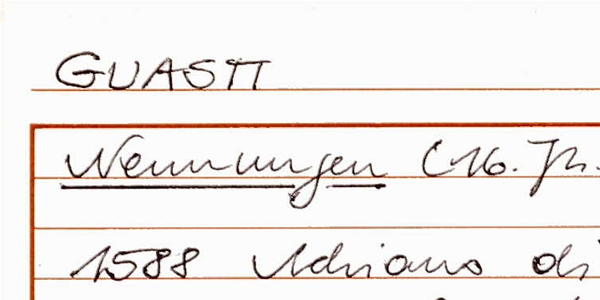 GUASTI
Nennungen (16. Jh.
1588 Adriano di